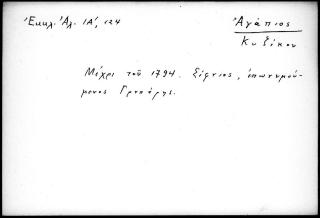 Ἐκκλ. Ἀλ. ΙΑ', 124
Ἀγάπιος
Κυζίκου
Μέχρι τοῦ 1794. Σίφνιος, ἐπωνυμού-
μενος Γρυπάρης.